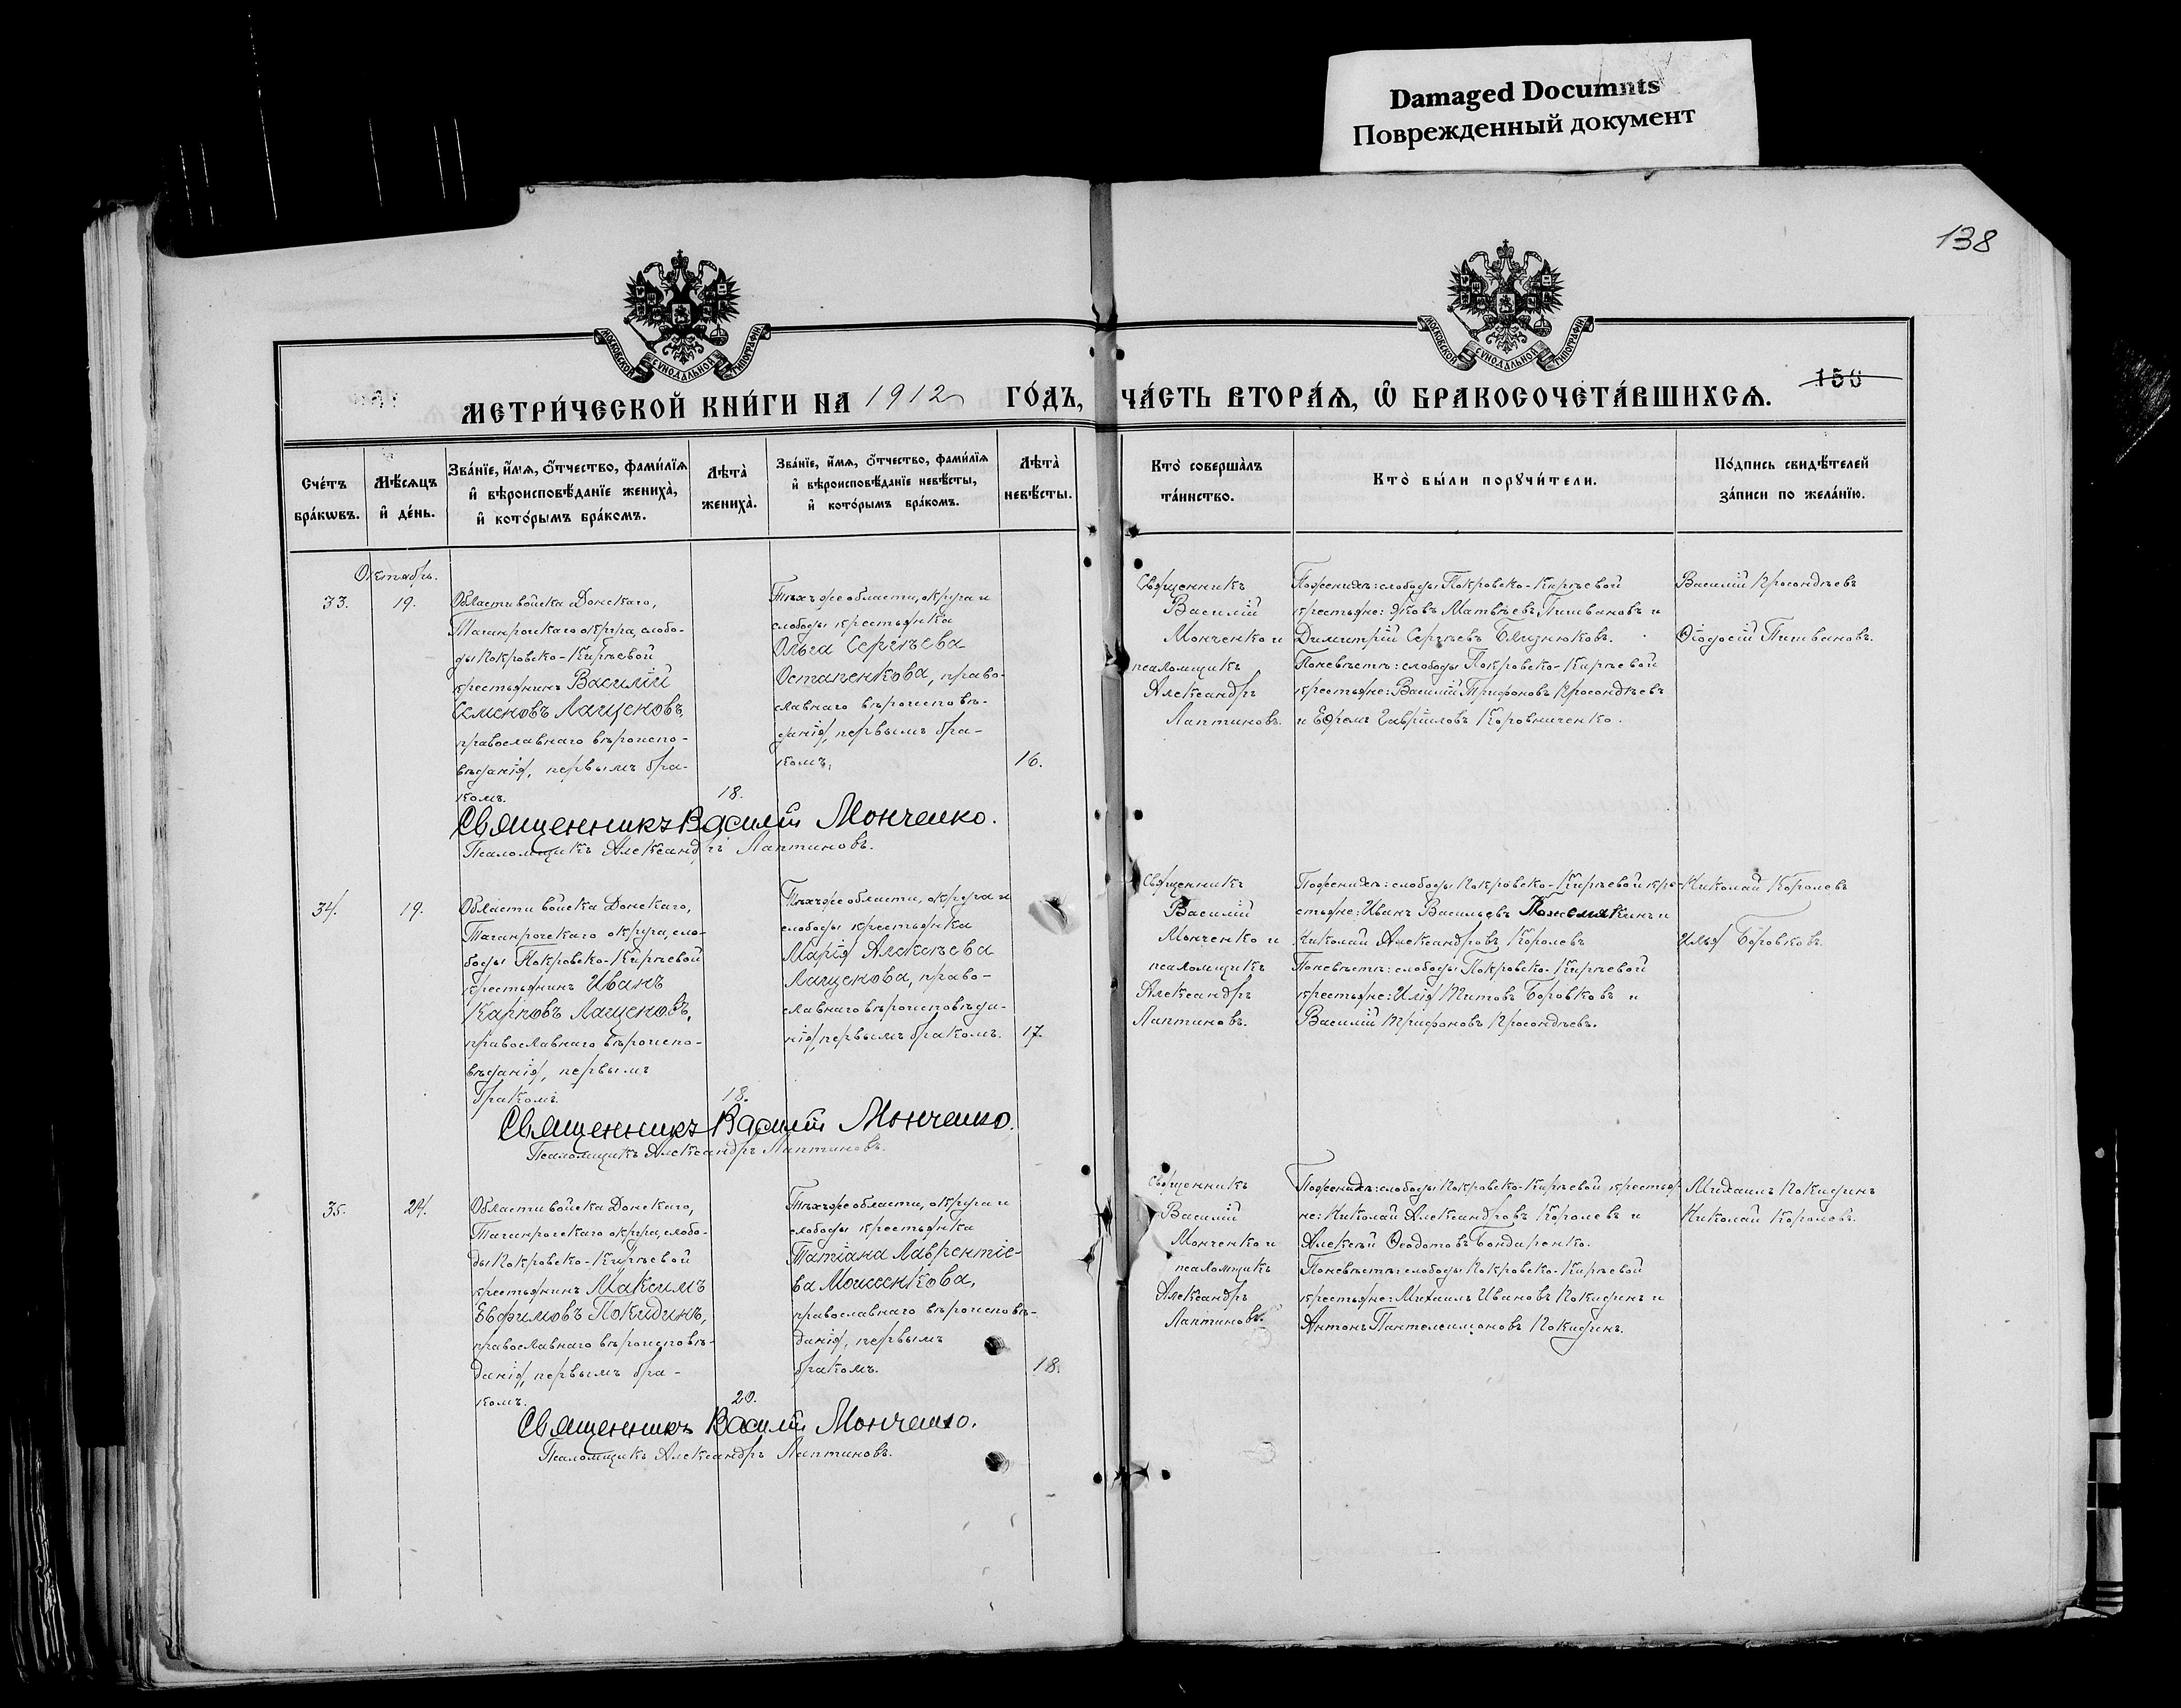 Damaged Documnts
Поврежденный документ
138
МОСКОВСКОЙ СѴНОДАЛЬНОЙ ТИПОГРАФІИ
МОСКОВСКОЙ СѴНОДАЛЬНОЙ ТИПОГРАФІИ
МЕТРИ́ЧЕСКОЙ КНИ́ГИ НА 1912 ГО́ДЪ,
ЧА́СТЬ ВТОРА́Я, Ѡ БРАКОСОЧЕТА́ВШИХСЯ.
150
Сче́тъ
бра́кѡвъ.
Мѣ́сяцъ
и҆ де́нь.
Зва́нїе, и҆́мя, ѻ҆́тчество, фами́лїя
и҆ вѣроисповѣ́данїе жениха̀,
и҆ кото́рымъ бра́комъ.
Лѣта̀
жениха̀.
Зва́нїе, и҆́мя, ѻ҆́тчество, фами́лїя
и҆ вѣроисповѣ́данїе невѣ́сты,
и҆ кото́рымъ бра́комъ.
Лѣта̀
невѣ́сты.
Кто̀ соверша̀лъ
та́инство.
Кто̀ бы́ли порꙋчи́тели.
По́дпись свидѣ́телей
за́писи по жела́нїю.
Октябрь.
33.
19.
Области войска Донскаго,
Таганрогскаго округа, слобо-
ды Покровско-Кирѣевой
крестьянинъ Василій
Семеновъ Лащеновъ,
православнаго вѣроиспо-
вѣданія, первымъ бра-
комъ.
18.
Тѣхъ же области, округа и
слободы крестьянка
Ольга Сергѣева
Остапенкова, право-
славнаго вѣроисповѣ-
данія, первымъ бра-
комъ.
16.
Священникъ
Василій
Монченко и
псаломщикъ
Александръ
Лаптиновъ.
По женихѣ: слободы Покровско-Кирѣевой
крестьяне: Яковъ Матвѣевъ Пишвановъ и
Димитрій Сергѣевъ Близнюковъ.
По невѣстѣ: слободы Покровско-Кирѣевой
крестьяне: Василій Трифоновъ Кросондѣевъ
и Ефремъ Гавріиловъ Коровниченко.
Василій Кросондѣевъ
Ѳеодосій Пишвановъ.
Священникъ Василій Монченко.
Псаломщикъ Александръ Лаптиновъ.
34.
19.
Области войска Донскаго,
Таганрогскаго округа, сло-
боды Покровско-Кирѣевой
крестьянинъ Иванъ
Карповъ Лащеновъ,
православнаго вѣроиспо-
вѣданія, первымъ
бракомъ.
18.
Тѣхъ же области, округа и
слободы крестьянка
Марія Алексѣева
Лащенова, право-
славнаго вѣроисповѣда-
нія, первымъ бракомъ.
17.
Священникъ
Василій
Монченко и
псаломщикъ
Александръ
Лаптиновъ.
По женихѣ: слободы Покровско-Кирѣевой кре-
стьяне: Иванъ Васильевъ и
Николай Александровъ Королевъ
По невѣстѣ: слободы Покровско-Кирѣевой
крестьяне: Илія Титовъ Боровковъ и
Василій Трифоновъ Кросондѣевъ.
Николай Королевъ
Илья Боровковъ.
Священникъ Василій Монченко.
Псаломщикъ Александръ Лаптиновъ.
35.
24.
Области войска Донскаго,
Таганрогскаго округа, слобо-
ды Покровско-Кирѣевой
крестьянинъ Максимъ
Евфимовъ Покидинъ,
православнаго вѣроисповѣ-
данія, первымъ бра-
комъ.
20.
Тѣхъ же области, округа и
слободы крестьянка
Татіана Лаврентіе-
ва Моисенкова,
православнаго вѣроисповѣ-
данія, первымъ
бракомъ.
18.
Священникъ
Василій
Монченко и
псаломщикъ
Александръ
Лаптиновъ.
По женихѣ: слободы Покровско-Кирѣевой крестья-
не: Николай Александровъ Королевъ и
Алексѣй Ѳеодотовъ Бондаренко.
По невѣстѣ: слободы Покровско-Кирѣевой
крестьяне: Михаилъ Ивановъ Покидинъ и
Антонъ Пантелеимоновъ Покидинъ.
Михаилъ Покидинъ
Николай Королевъ.
Священникъ Василій Монченко.
Псаломщикъ Александръ Лаптиновъ.